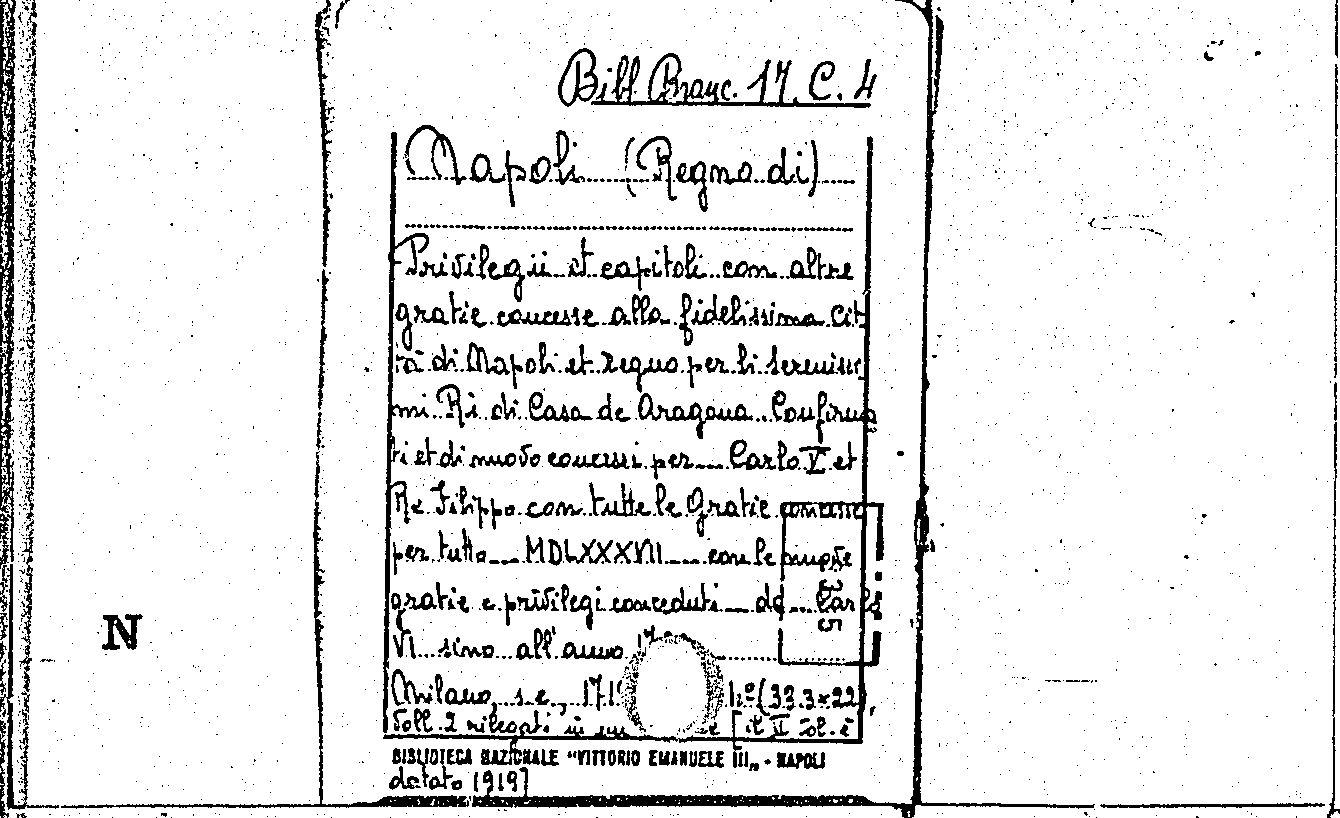 Bibl. Branc. 17. C. 4
Napoli (Regno di)
Privilegii et capitoli con altre
gratie concesse alla fidelissima Cit
tà di Napoli et Regno per li serenissi
mi Ri di Casa de Aragona. Confirma
ti et di nuovo concessi per Carlo V et
Re Filippo con tutte le Gratie concesse
per tutto MDLXXXVII con le nuove
gratie e privilegi conceduti da Carlo
VI sino all'anno
Milano, s.e., (33.3×22),
Voll. 2 rilegati in [il II vol. è
BIBLIOTECA NAZIONALE "VITTORIO EMANUELE III" - NAPOLI
datato 1919]
N